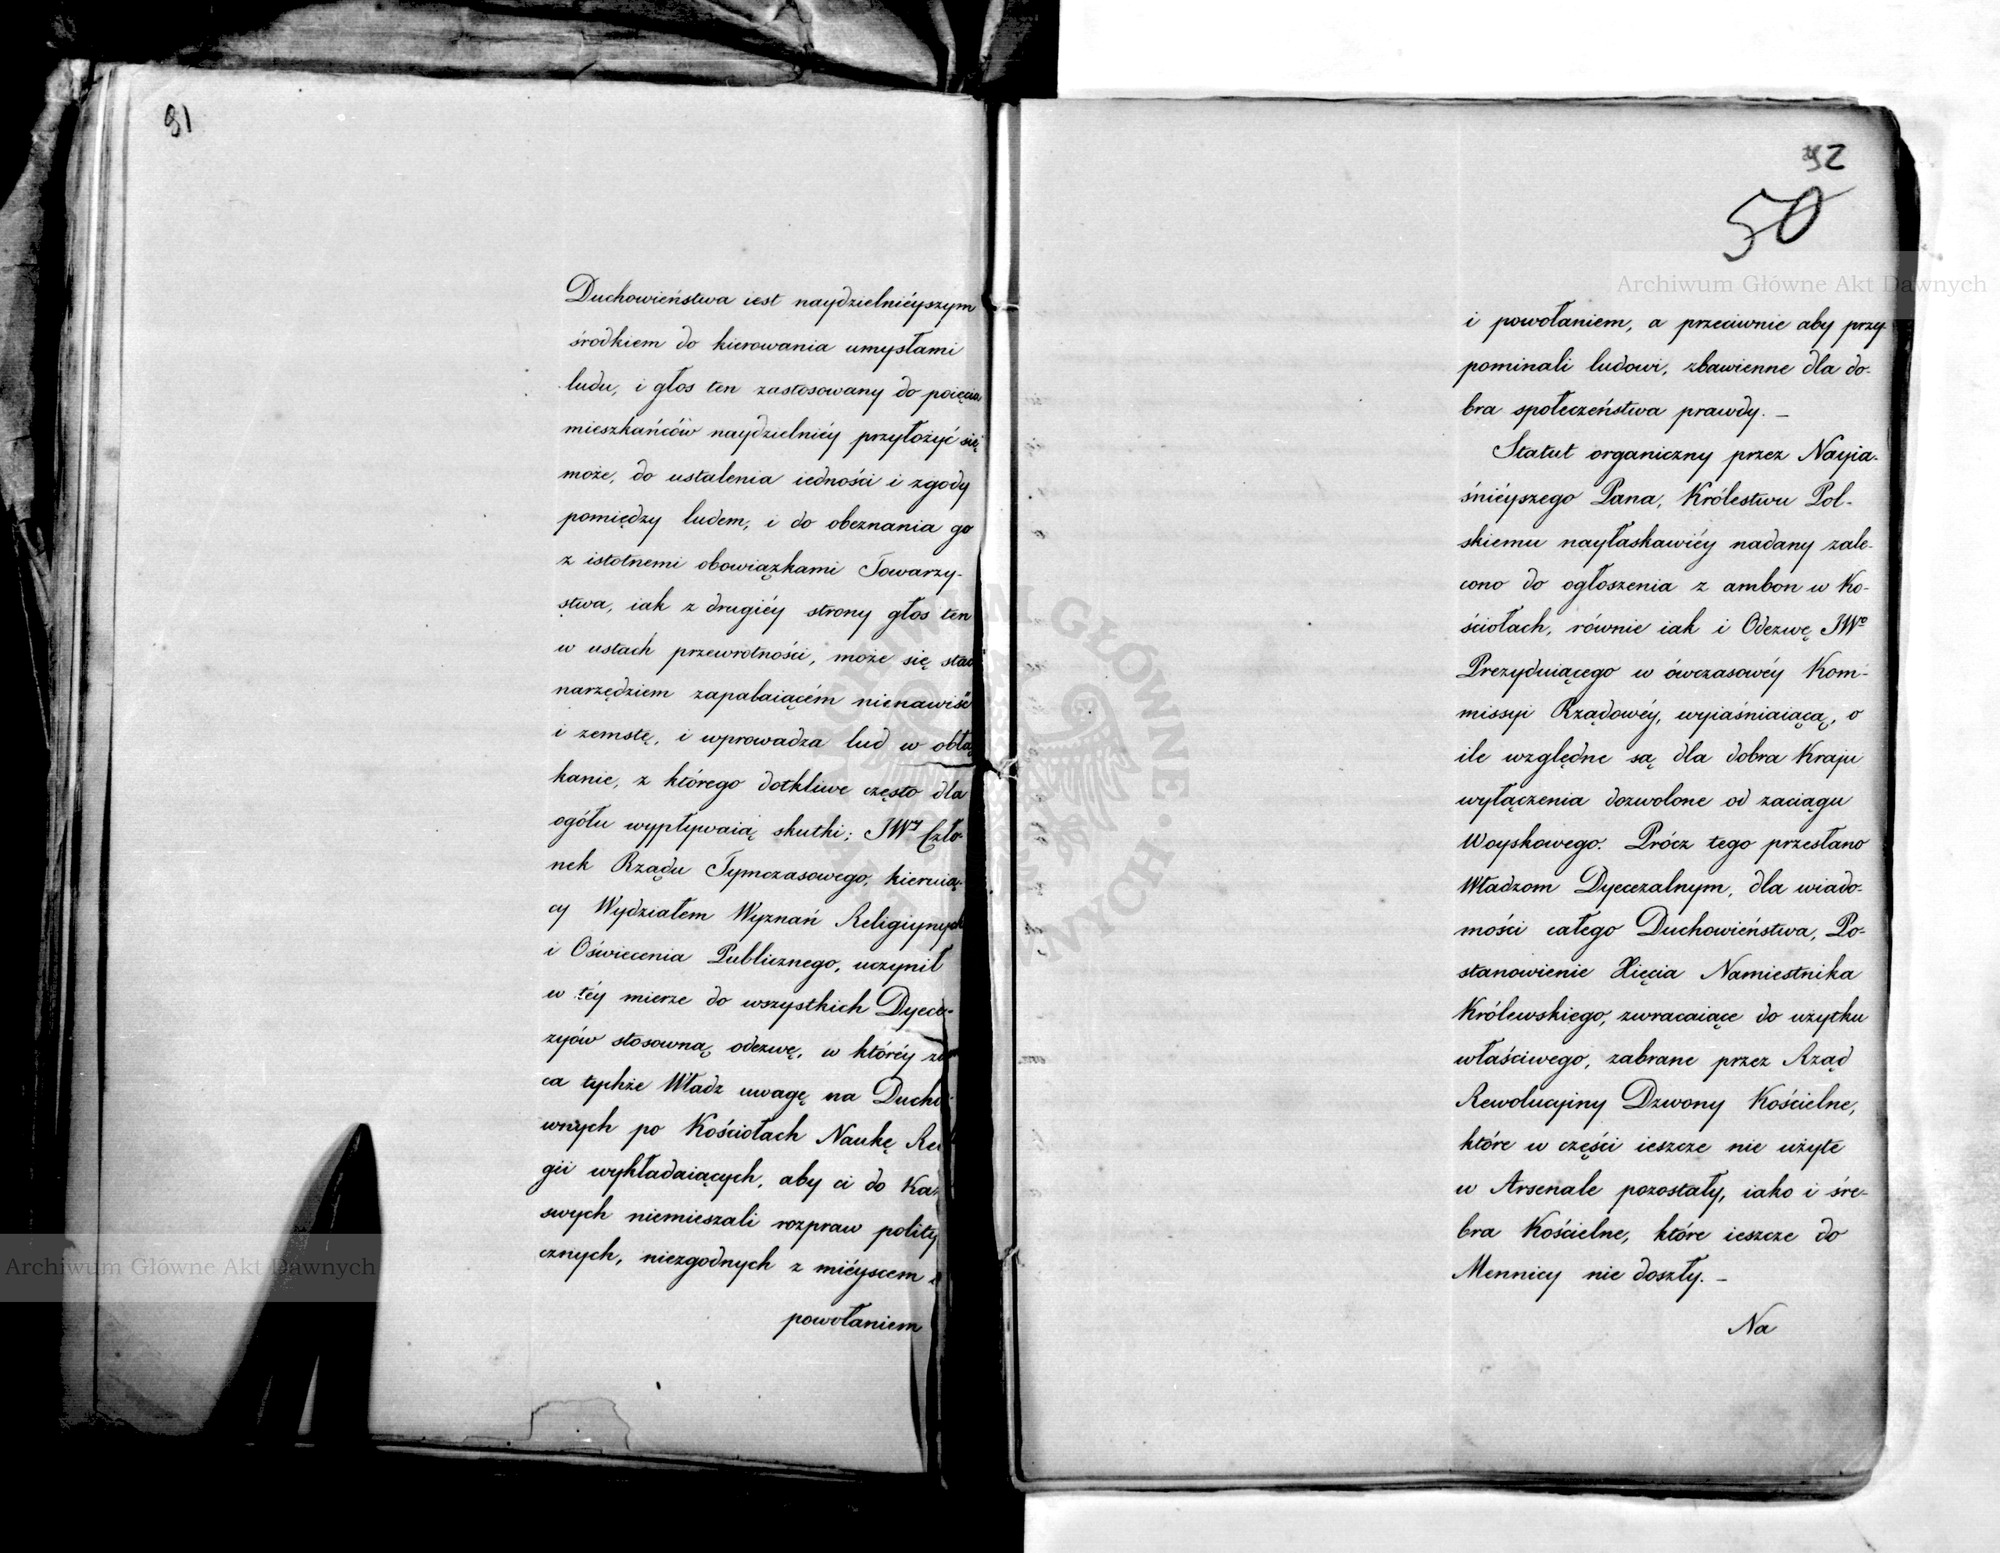 91
Duchowieństwa iest naydzielniéyszym
środkiem do kierowania umysłami
ludu, i głos ten zastosowany do poięcia
mieszkańców naydzielniéy przyłożyć się
może, do ustalenia iedności i zgody
pomiędzy ludem, i do obeznania go
z istotnemi obowiązkami Towarzy-
stwa, iak z drugiéy strony głos ten
w ustach przewrotności, może się stać
narzędziem zapalaiącém nienawiść
i zemstę, i wprowadza lud w obłą
kanie, z którego dotkliwe często dla
ogółu wypływaią skutki; JWy Czło-
nek Rządu Tymczasowego, kieruią-
cy Wydziałem Wyznań Religiynych
i Oświecenia Publicznego, uczynił
w téy mierze do wszystkich Dyece-
zyów stosowną odezwę, w któréy
ca tychże Władz uwagę na Ducho-
wnych po Kościołach Naukę Re
gii wykładaiących, aby ci do Ka
swych niemieszali rozpraw polity
cznych, niezgodnych z miéyscem i
powołaniem
92
50
i powołaniem, a przeciwnie aby przy
pominali ludowi, zbawienne dla do-
bra społeczeństwa prawdy. —
Statut organiczny przez Nayia-
śniéyszego Pana, Królestwu Pol-
skiemu nayłaskawiéy nadany zale-
cono do ogłoszenia z ambon w Ko-
ściołach, równie iak i Odezwę JWo
Prezyduiącego w ówczasowéy Kom-
missyi Rządowéy, wyiaśniaiącą, o
ile względne są dla dobra Kraju
wyłączenia dozwolone od zaciągu
Woyskowego. Prócz tego przesłano
Władzom Dyecezalnym, dla wiado-
mości całego Duchowieństwa, Po-
stanowienie Xięcia Namiestnika
Królewskiego, zwracaiące do użytku
właściwego, zabrane przez Rząd
Rewolucyiny Dzwony Kościelne,
które w części ieszcze nie użyte
w Arsenale pozostały, iako i śre-
bra Kościelne, które ieszcze do
Mennicy nie doszły. —
Na
Archiwum Główne Akt Dawnych
Archiwum Główne Akt Dawnych